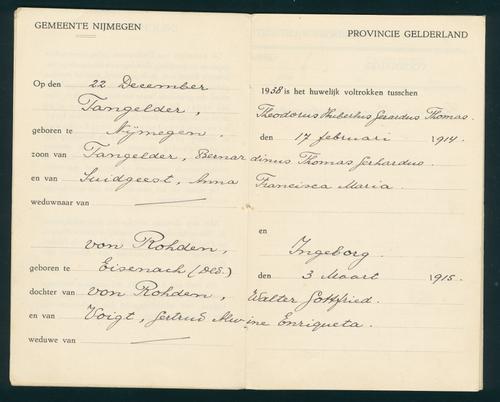 GEMEENTE NIJMEGEN PROVINCIE GELDERLAND
Op den 22 December 1938 is het huwelijk voltrokken tusschen
Tangelder, Theodorus Hubertus Gerardus Thomas.
geboren te Nijmegen. den 17 februari 1914.
zoon van Tangelder, Bernardinus Thomas Gerhardus.
en van Suidgeest, Anna Francisca Maria.
weduwnaar van
en
von Rohden, Ingeborg.
geboren te Eisenach (Dld.) den 3 Maart 1915.
dochter van von Rohden, Walter Gottfried.
en van Voigt, Gertrud Alwine Enriqueta.
weduwe van